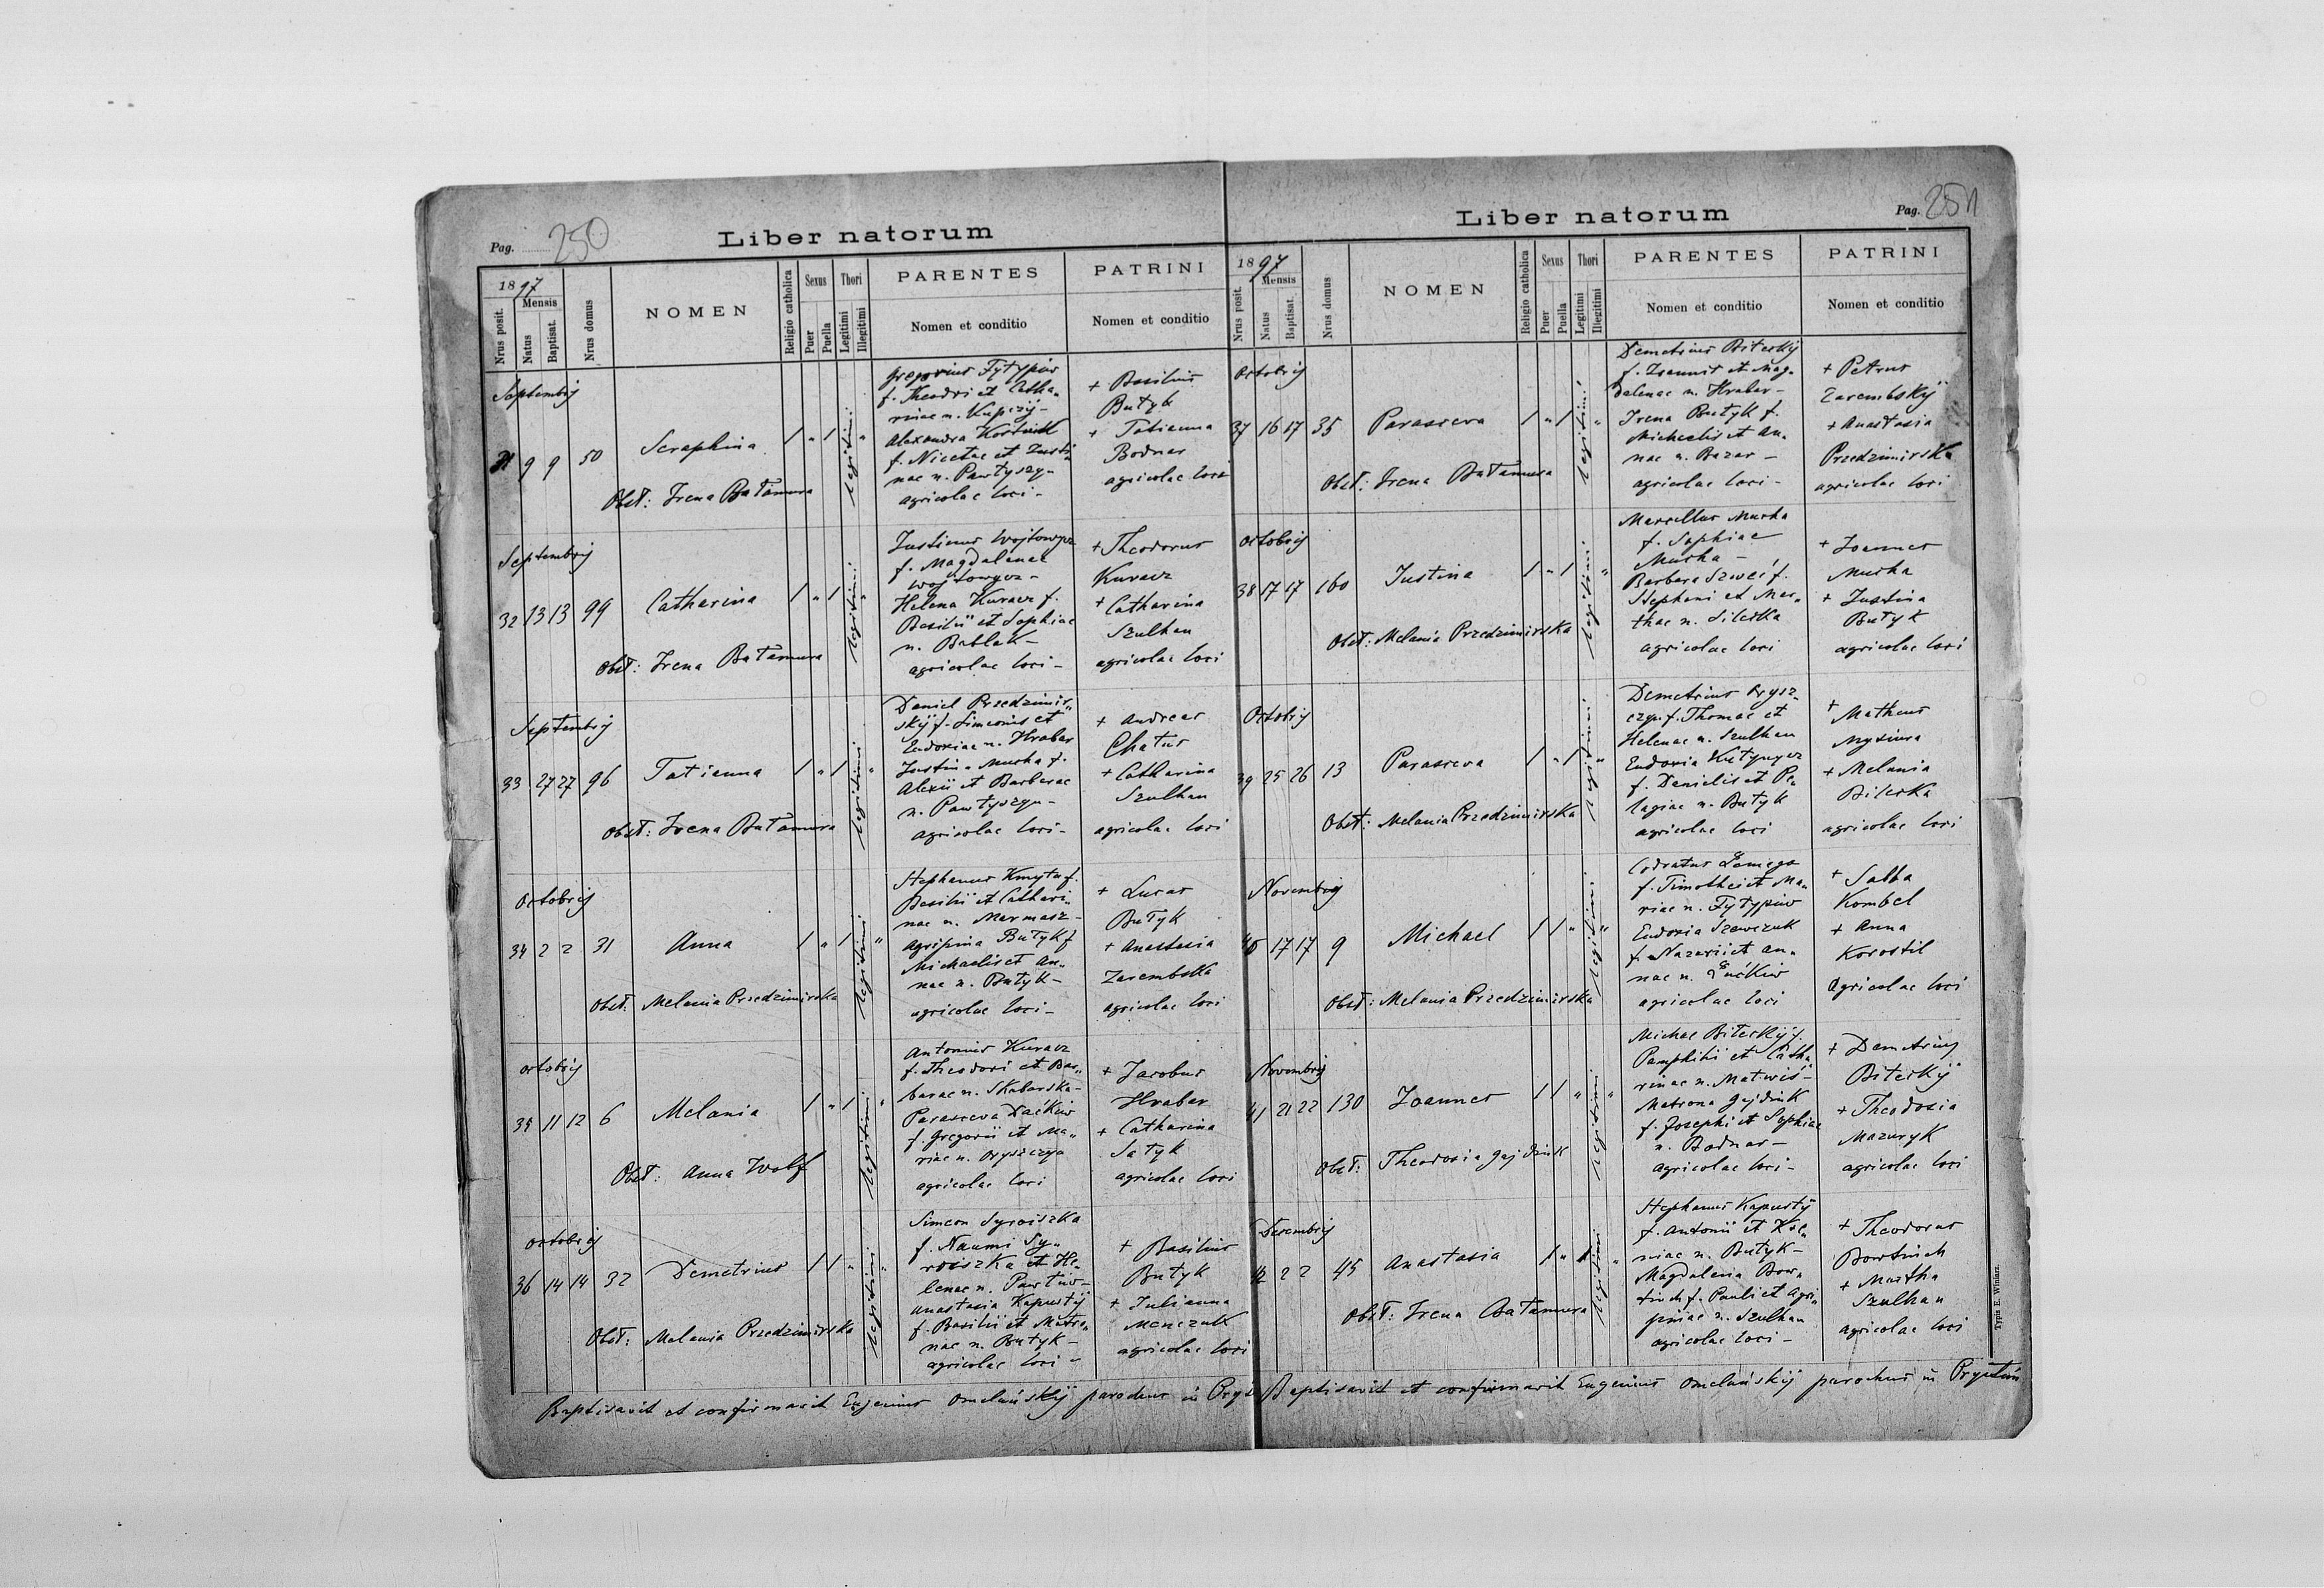 Pag. 250
Liber natorum
1897
Mensis
Nrus posit.
Natus
Baptisat.
Nrus domus
NOMEN
Religio catholica
Sexus
Puer
Puella
Thori
Legitimi
Illegitimi
PARENTES
Nomen et conditio
PATRINI
Nomen et conditio
Septembrij
31 9 9 50 Seraphina 1 " 1 legitimi "
Obst: Irena Batamura
Gregorius Fytypiw
f. Theodri et Catha-
rinae n. Kupczij -
Alexandra
f. Nicetae et Justi
nae n. Pawtyszyn -
agricolae loci -
+ Basilius
Butyk
+ Tatianna
Bodnar
agricolae loci
Septembrij
32 13 13 99 Catharina 1 " 1 legitimi "
Obst: Irena Batamura
Justinus Wojtowycz
f. Magdalenae
Wojtowycz -
Helena Kuracz f.
Basilii et Sophiae
n. Bablak -
agricolae loci -
+ Theodorus
Kuracz
+ Catharina
Szulhan
agricolae loci
Septembrij
33 27 27 96 Tatianna 1 " 1 legitimi "
Obst: Irena Batamura
Daniel Przedzimir„
skij f. Simeonis et
Eudoxiae n. Hrabar
Justina Mucha f.
Alexii et Barbarae
n. Pawtyszyn -
agricolae loci -
+ Andreas
Chatus
+ Catharina
Szulhan
agricolae loci
Octobrij
34 2 2 31 Anna 1 " 1 legitimi "
Obst: Melania Przedzimirska
Stephanus Kmyta f.
Basilii et Cathari„
nae n. Marmasz -
Agripina Butyk f
Michaelis et An„
nae n. Butyk -
agricolae loci -
+ Lucas
Butyk
+ Anastasia
Zarembska
agricolae loci
Octobrij
35 11 12 6 Melania 1 " 1 legitimi "
Obst: Anna Wolf
Antonius Kuracz
f. Theodori et Bar„
barae n. Skabarska -
Parasceva Daćkiw
f. Gregorii et Ma„
riae n. Pryszczya
agricolae loci
+ Jacobus
Hrabar
+ Catharina
Satyk
agricolae loci
Octobrij
36 14 14 32 Demetrius 1 1 " legitimi "
Obst: Melania Przedzimirska
Simeon Syroiszka
f. Naumi Sy„
roiszka et He„
lenae n. Pawtiw -
Anastasia Kapustij
f. Basilii et Matro„
nae n. Butyk -
agricolae loci -
+ Basilius
Butyk
+ Julianna
Menczuk
agricolae loci
Baptisavit et confirmavit Eugenius Omelańskij parochus in
Liber natorum
Pag. 251
1897
Mensis
Nrus posit.
Natus
Baptisat.
Nrus domus
NOMEN
Religio catholica
Sexus
Puer
Puella
Thori
Legitimi
Illegitimi
PARENTES
Nomen et conditio
PATRINI
Nomen et conditio
Octobrij
37 16 17 35 Parasceva 1 " 1 legitimi "
Obst: Irena Batamura
Demetrius Biteckij
f. Ioannis et Mag„
dalenae n. Hrabar -
Irena Butyk f.
Michaelis et An„
nae n. Bazar -
agricolae loci -
+ Petrus
Zarembskij
+ Anastasia
Przedzimirska
agricolae loci
Octobrij
38 17 17 160 Justina 1 " 1 legitimi "
Obst: Melania Przedzimirska
Marcellus Mucha
f. Sophiae
Mucha -
Barbara Szwec f.
Stephani et Mar„
thae n. Silecka
agricolae loci
+ Joannes
Mucha
+ Justina
Butyk
agricolae loci
Octobrij
39 25 26 13 Parasceva 1 " 1 legitimi "
Obst: Melania Przedzimirska
Demetrius Prysz„
czyn f. Thomae et
Helenae n. Szulhan
Eudoxia
f. Danielis et Pe„
lagiae n. Butyk
agricolae loci
+ Matheus
Myziura
+ Melania
Bilecka
agricolae loci
Novembrij
40 17 17 9 Michael 1 1 " legitimi "
Obst: Melania Przedzimirska
Codratus
f. Timothei et Ma„
riae n. Fytypiw
Eudoxia Szewczuk
f. Nazarii et An„
nae n.
agricolae loci
+ Sabba
Kombel
+ Anna
Korostil
Agricolae loci
Novembrij
41 21 22 130 Joannes 1 1 " legitimi "
Obst: Theodosia Gajdiuk
Michae Biteckij f.
Pamphilii et Catha„
rinae n. Matwis -
Matrona Gajdiuk
f. Josephi et Sophiae
n. Bodnar -
agricolae loci -
+ Demetrius
Biteckij
+ Theodosia
Mazuryk
agricolae loci
Decembrij
42 2 2 45 Anastasia 1 " 1 legitimi "
Obst: Irena Batamura
Stephanus Kapustij
f. Antonii et Xe„
niae n. Butyk -
Magdalena Bow„
tiuch f. Pauli et Agri„
pinae n. Szulhan
agricolae loci -
+ Theodorus
Bowtiuch
+ Martha
Szulhan
agricolae loci
Baptisavit et confirmavit Eugenius Omelańskij parochus in
Typis E. Winiarz.